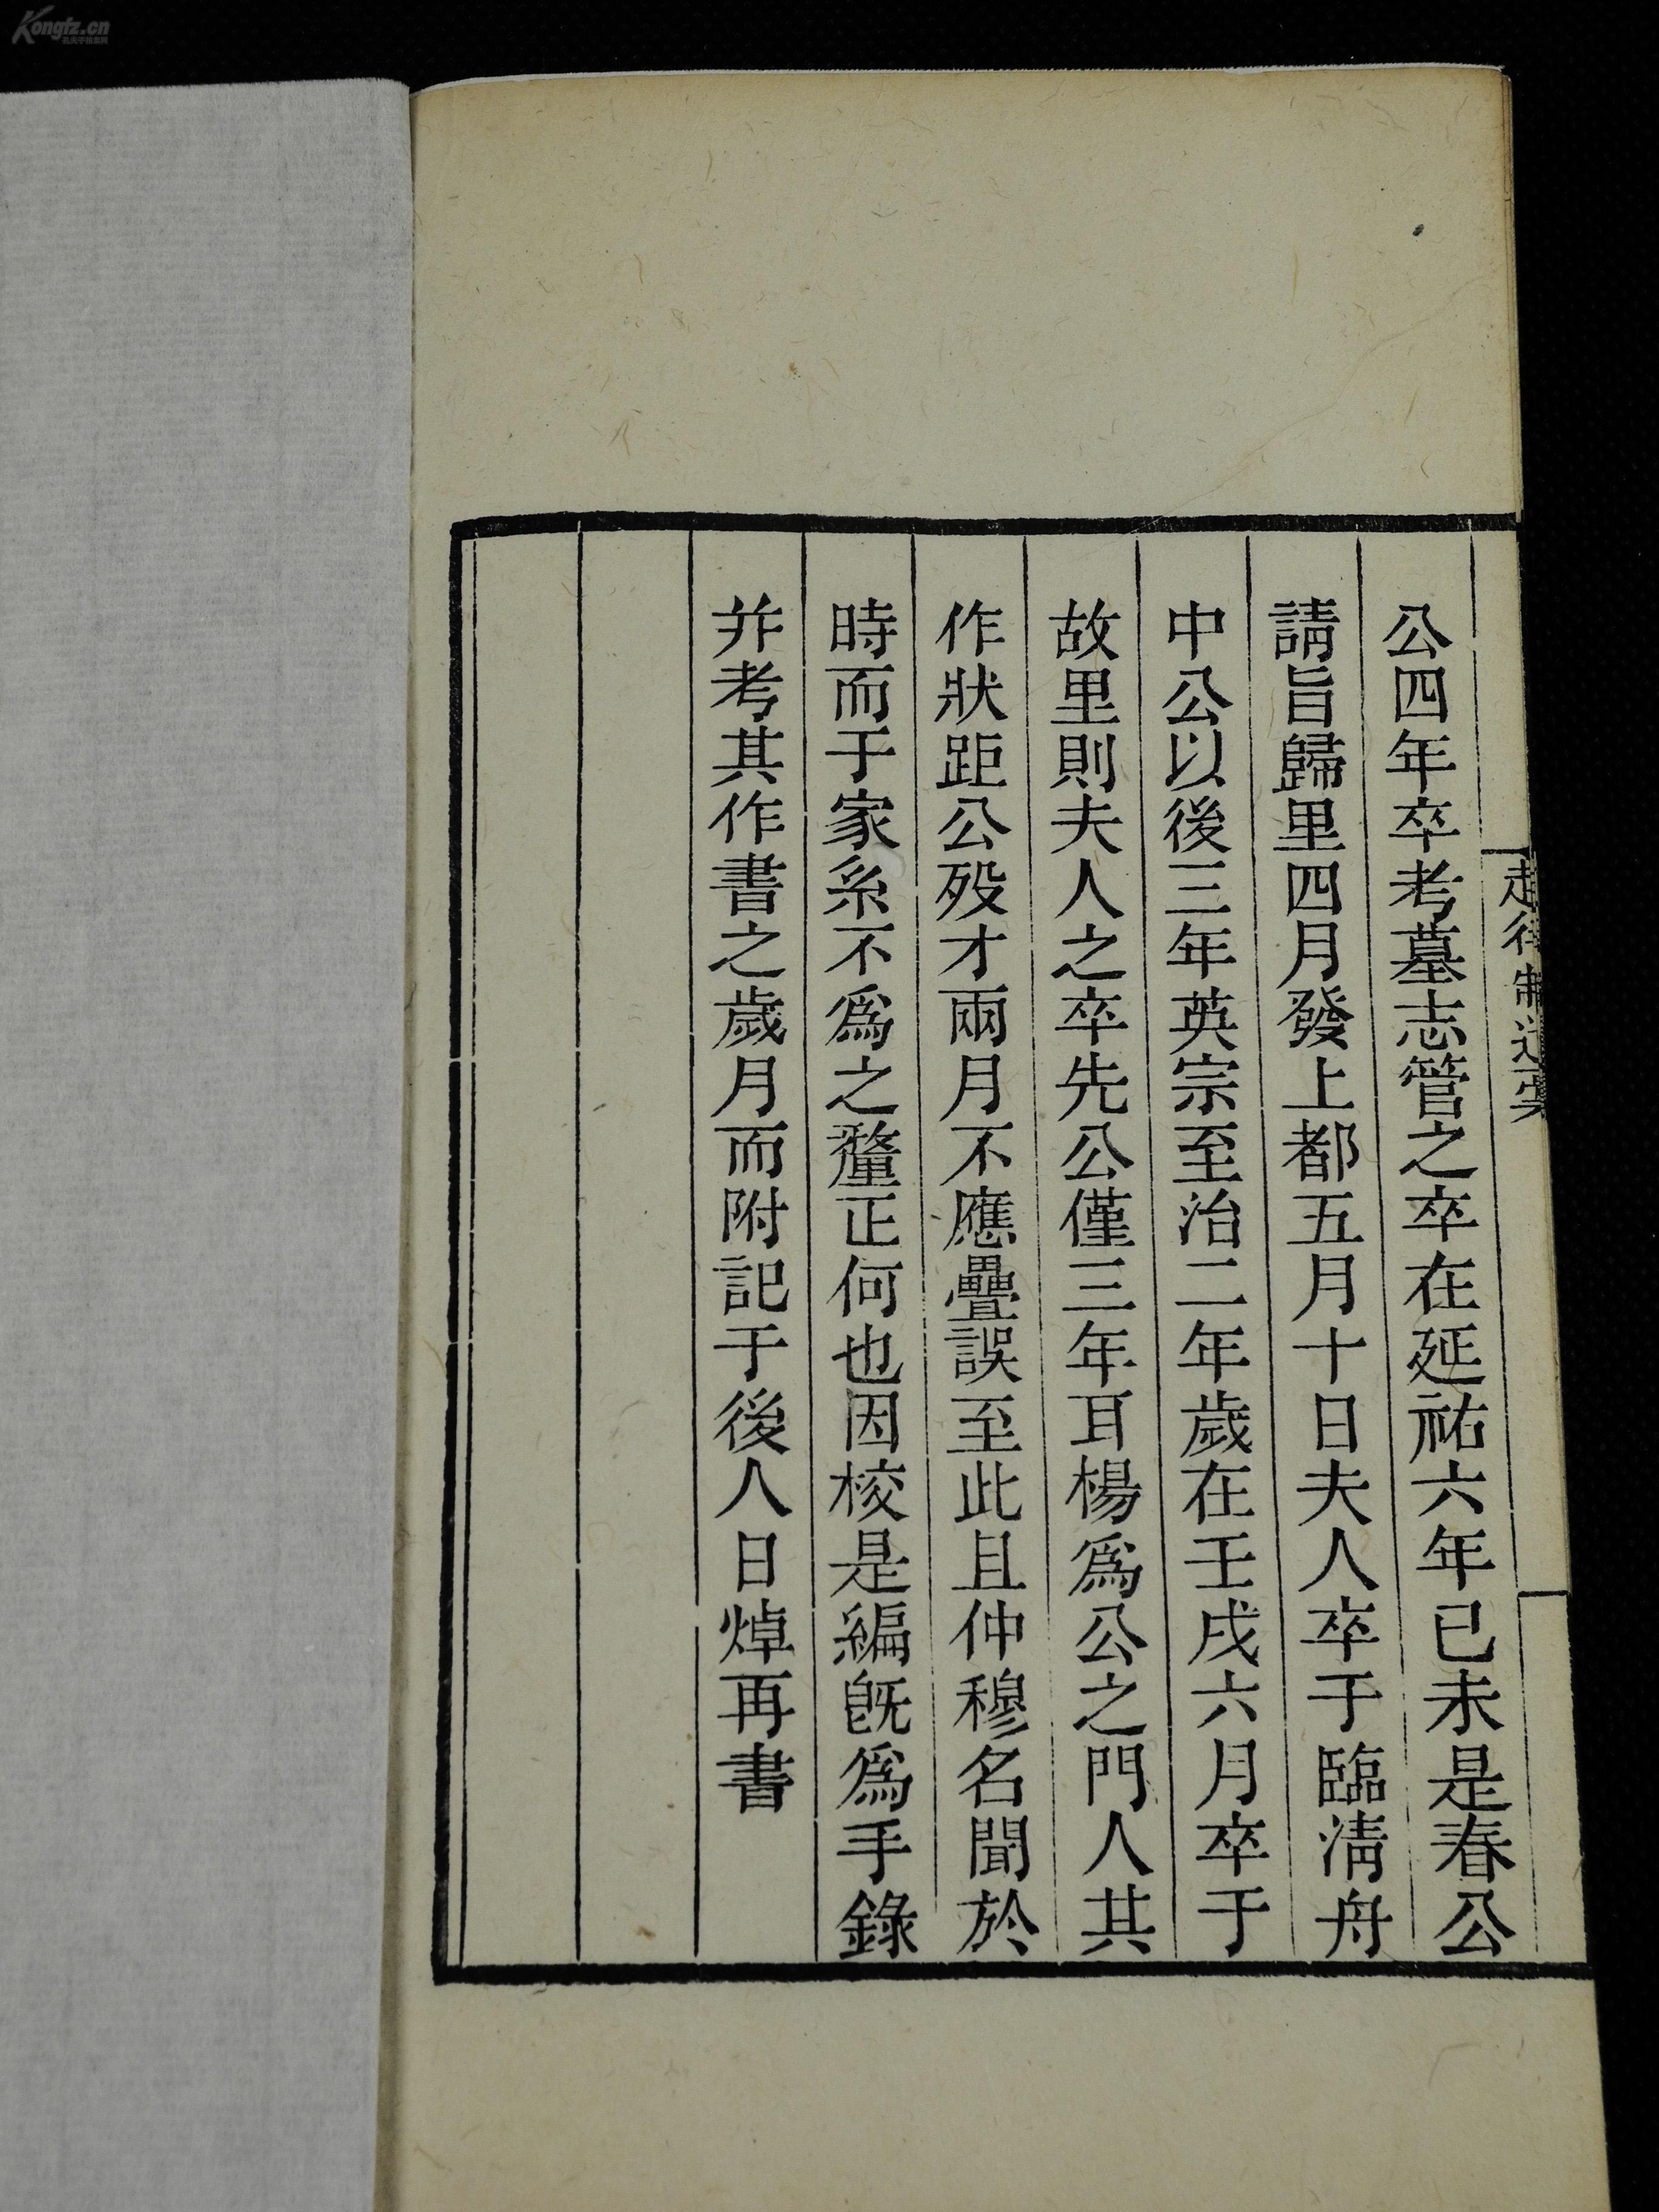 公四年卒考墓志管之卒在延祐六年已未是春公
請旨歸里四月發上都五月十日夫人卒于臨清舟
中公以後三年英宗至治二年歲在壬戌六月卒于
故里則夫人之卒先公僅三年耳楊爲公之門人其
作狀距公歿才兩月不應疊誤至此且仲穆名聞於
時而于家系不爲之釐正何也因校是編旣爲手錄
并考其作書之歲月而附記于後人日焯再書
Kongfz.cn